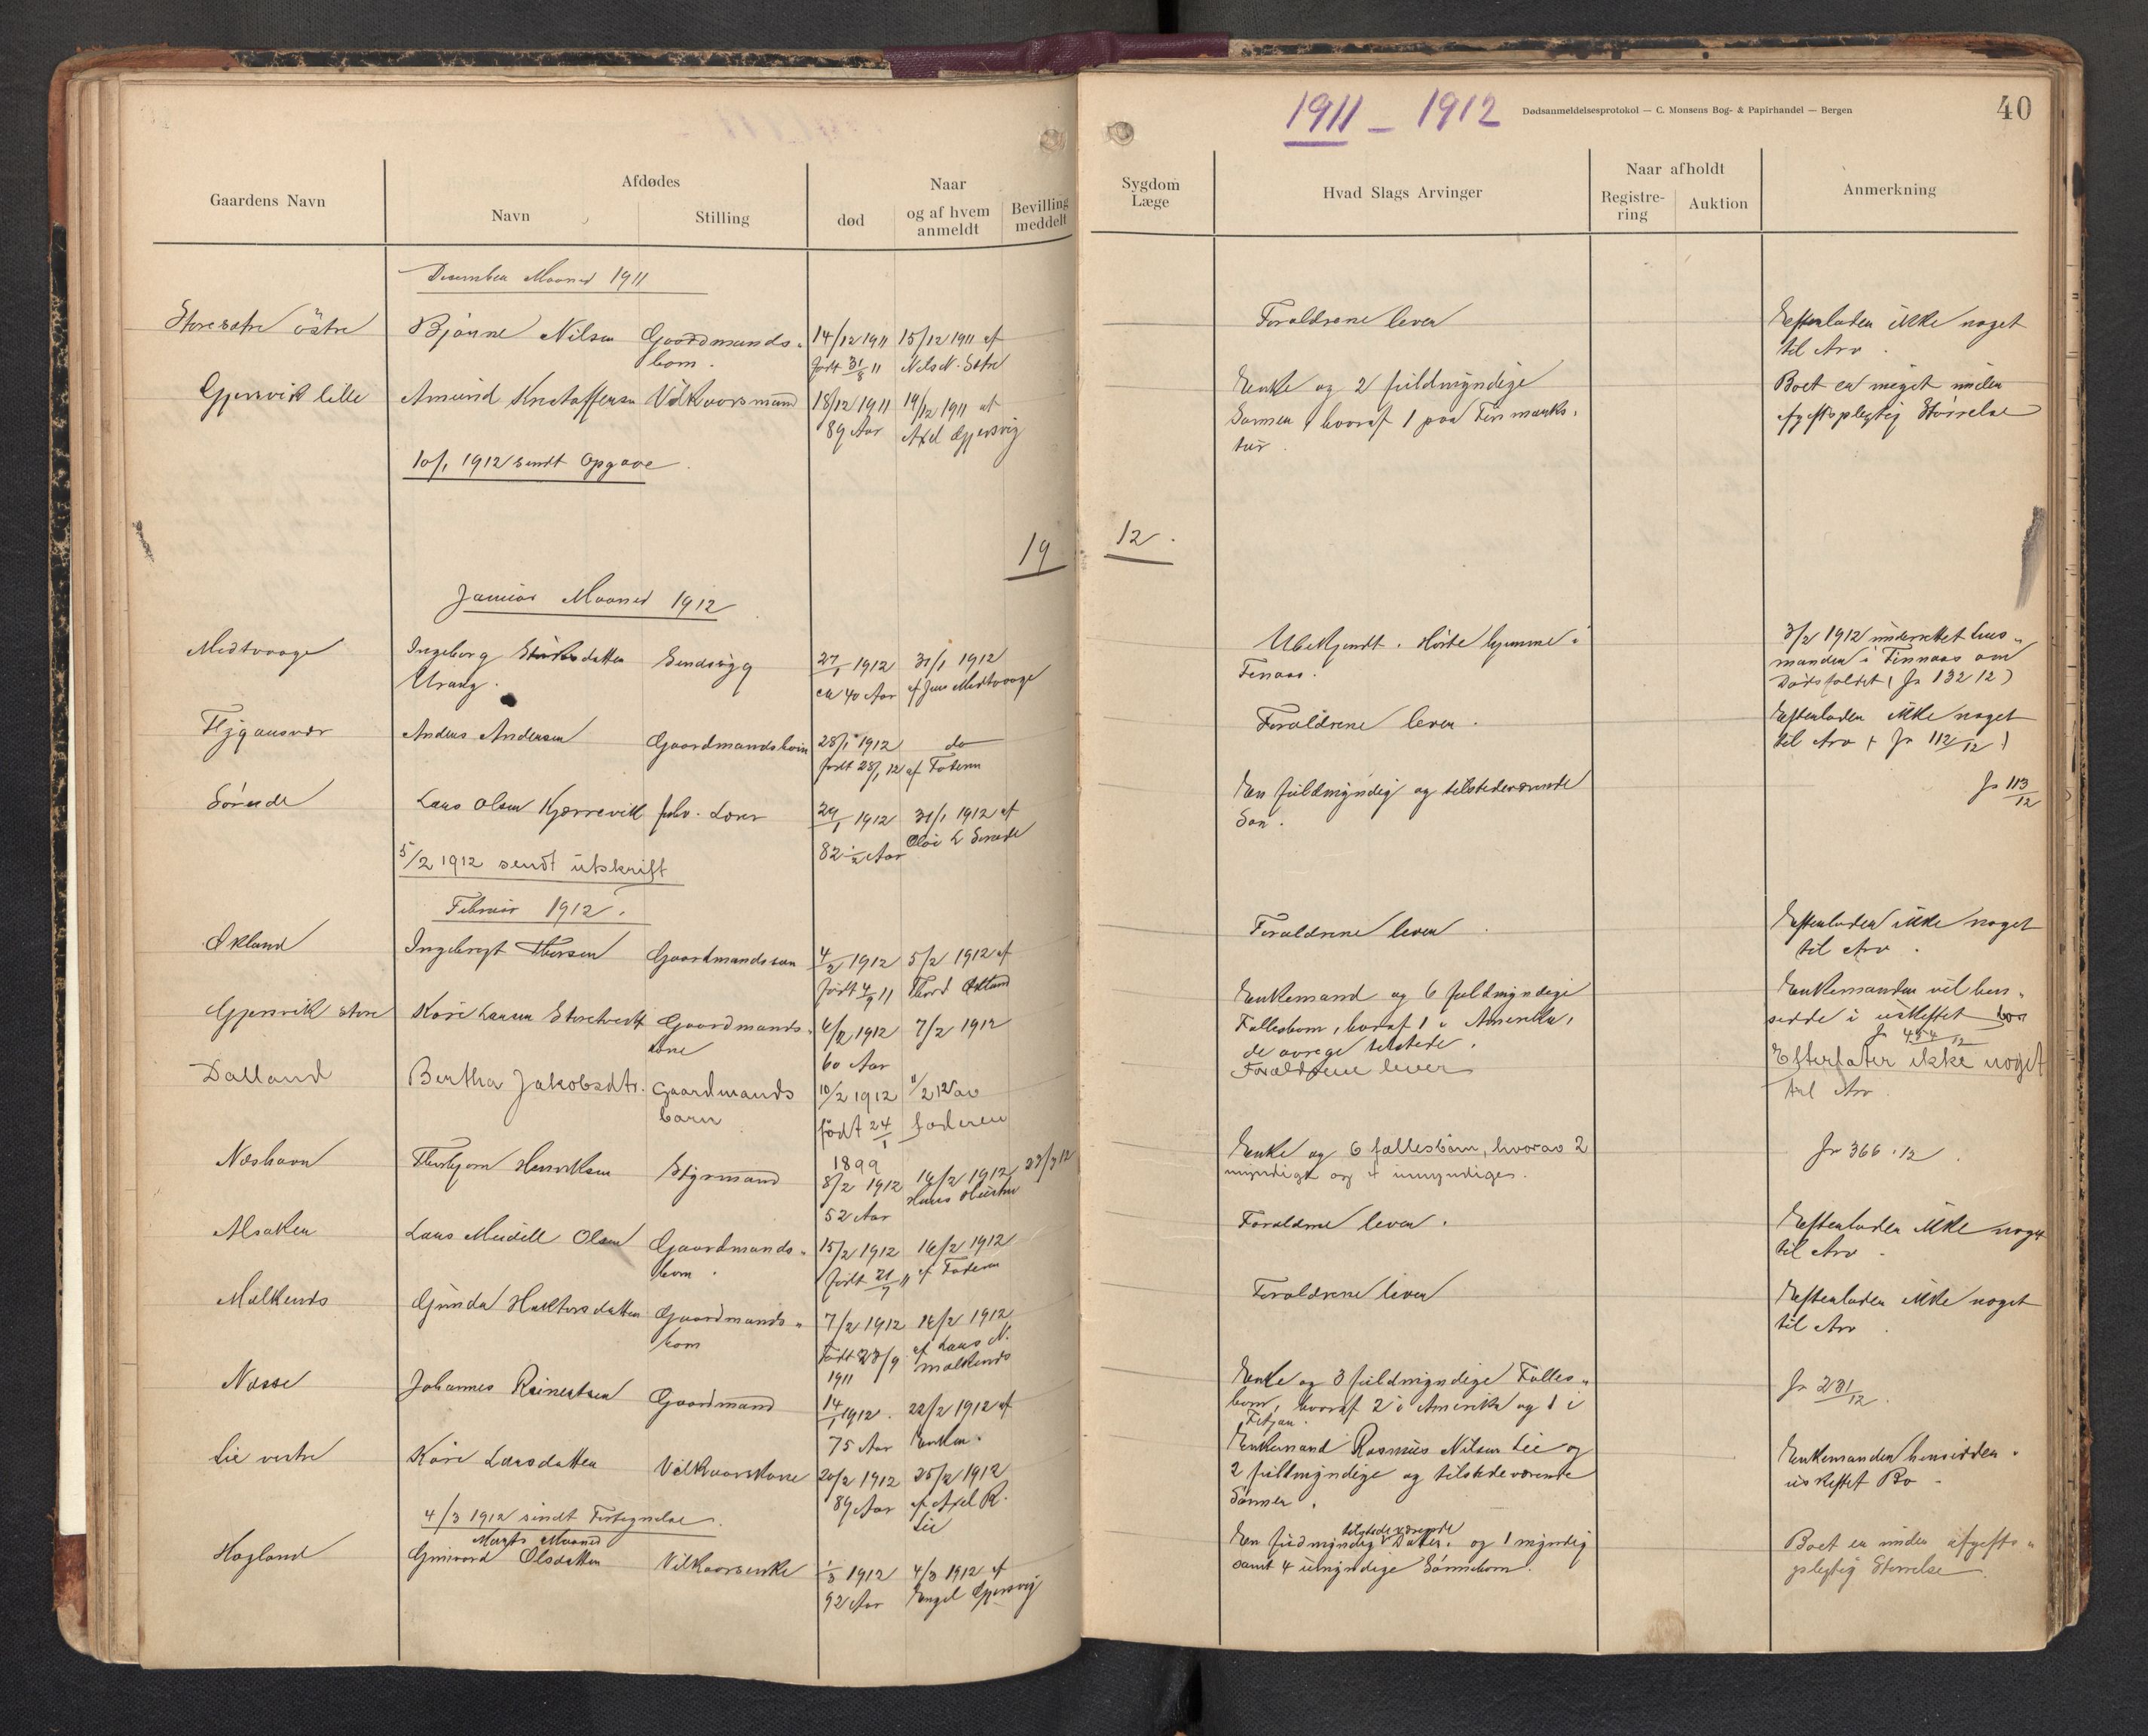 1911 - 1912
Dødsanmeldelsesprotokol — C. Monsens Bog- & Papirhandel — Bergen
40
Gaardens Navn
Afdødes
Navn
Stilling
Naar
død
og af hvem anmeldt
Bevilling meddelt
Sygdom
Læge
Hvad Slags Arvinger
Naar afholdt
Registre-
ring
Auktion
Anmerkning
December Maaned 1911
Storesætre östre
Nilsen
Gaardmands-
barn.
14/12 1911
født 31/8 11
15/12 1911 af
Nils N. Sætre
Forældrene lever
Efterlader ikke noget
til Arv.
Gjersvik lille
Amund Kristoffersen
Vilkaarsmand
18/12 1911
89 Aar
19/12 1911 af
Axel Gjersvig
Enke og 2 fuldmyndige
Sønner, hvoraf 1 paa Finmarks-
tur.
Boet er meget under
afgiftspligtig Størrelse
10/1 1912 sendt Opgave.
1912.
Januar Maaned 1912
Medtvaage
Ingeborg
Urang.
Sindssyg
27/1 1912
ca 40 Aar
31/1 1912
af Jens Medtvaage
Ubekjendt. Hörte hjemme i
Finaas.
3/2 1912 underrettet lens-
manden i Finnaas om
Dödsfaldet (Jr 132 12)
Anders Andersen
Gaardmandsbarn
28/1 1912
født 28/1 12
do
af Faderen
Forældrene lever.
Efterlader ikke noget
til Arv (Jr 112/12)
Sörude
Lars Olsen Kjærrevik
29/1 1912
82 1/2 Aar
31/1 1912 af
En fuldmyndig og tilstedeværende
Søn.
Jr 113/12
5/2 1912 sendt utskrift
Februar 1912.
Økland
Ingebrigt Thorsen
Gaardmandssøn
4/2 1912
5/2 1912 af
Thord Økland
Forældrene lever.
Efterlader ikke noget
til Arv.
Gjersvik store
Kari Larsen Storetvedt
Gaardmands-
kone
6/2 1912
60 Aar
7/2 1912
Enkemand og 6 fuldmyndige
Fællesbørn, hvoraf 1 i Amerika,
de øvrige tilstede.
Enkemanden vil hen-
sidde i uskiftet bo
Jr 454/12
Dalland
Bertha Jakobsdtr.
Gaardmands
barn
10/2 1912
født 24/1
1899
11/2 12 av
faderen
Forældrene lever
Efterlater ikke noget
til Arv.
Næshavn
Thorbjørn Henriksen
Styrmand
8/2 1912
52 Aar
16/2 1912
Enke og 6 fællesbørn, hvorav 2
myndige og 4 umyndiges.
Jr 366.12.
Alsaker
Lars Meidell Olsen
Gaardmands-
barn.
15/2 1912
16/2 1912
af Faderen
Forældrene lever.
Efterlader ikke noget
til Arv.
Mælkevds
Gunda
Gaardmands-
barn
7/2 1912
født 23/9
1911
16/2 1912
af Lars N.
Forældrene lever
Efterlader ikke noget
til Arv.
Næsse
Johannes Reinertsen
Gaardmand
14/1 1912.
75 Aar
22/2 1912 af
Enken.
Enke og 3 fuldmyndige Fælles-
børn, hvoraf 2 i Amerika og 1 i
Fitjar.
Jr 231/12.
Lie vestre
Kari Larsdatter
Vilkaarskone
20/2 1912
89 Aar
25/2 1912
af Axel R.
Lie
Enkemand Rasmus Nilsen Lie og
2 fuldmyndige og tilstedeværende
Sønner.
Enkemanden hensidder i
uskiftet Bo.
4/3 1912 sendt Fortegnelse.
Marts Maaned
Hagland
Olsdatter
Vilkaarsenke
1/3 1912
92 Aar
4/3 1912 af
Engel Gjersvig
En fuldmyndig tilstedeværende Datter og 1 myndig
samt 4 umyndige Sønnebørn.
Boet er under afgifts-
pligtig Størrelse.